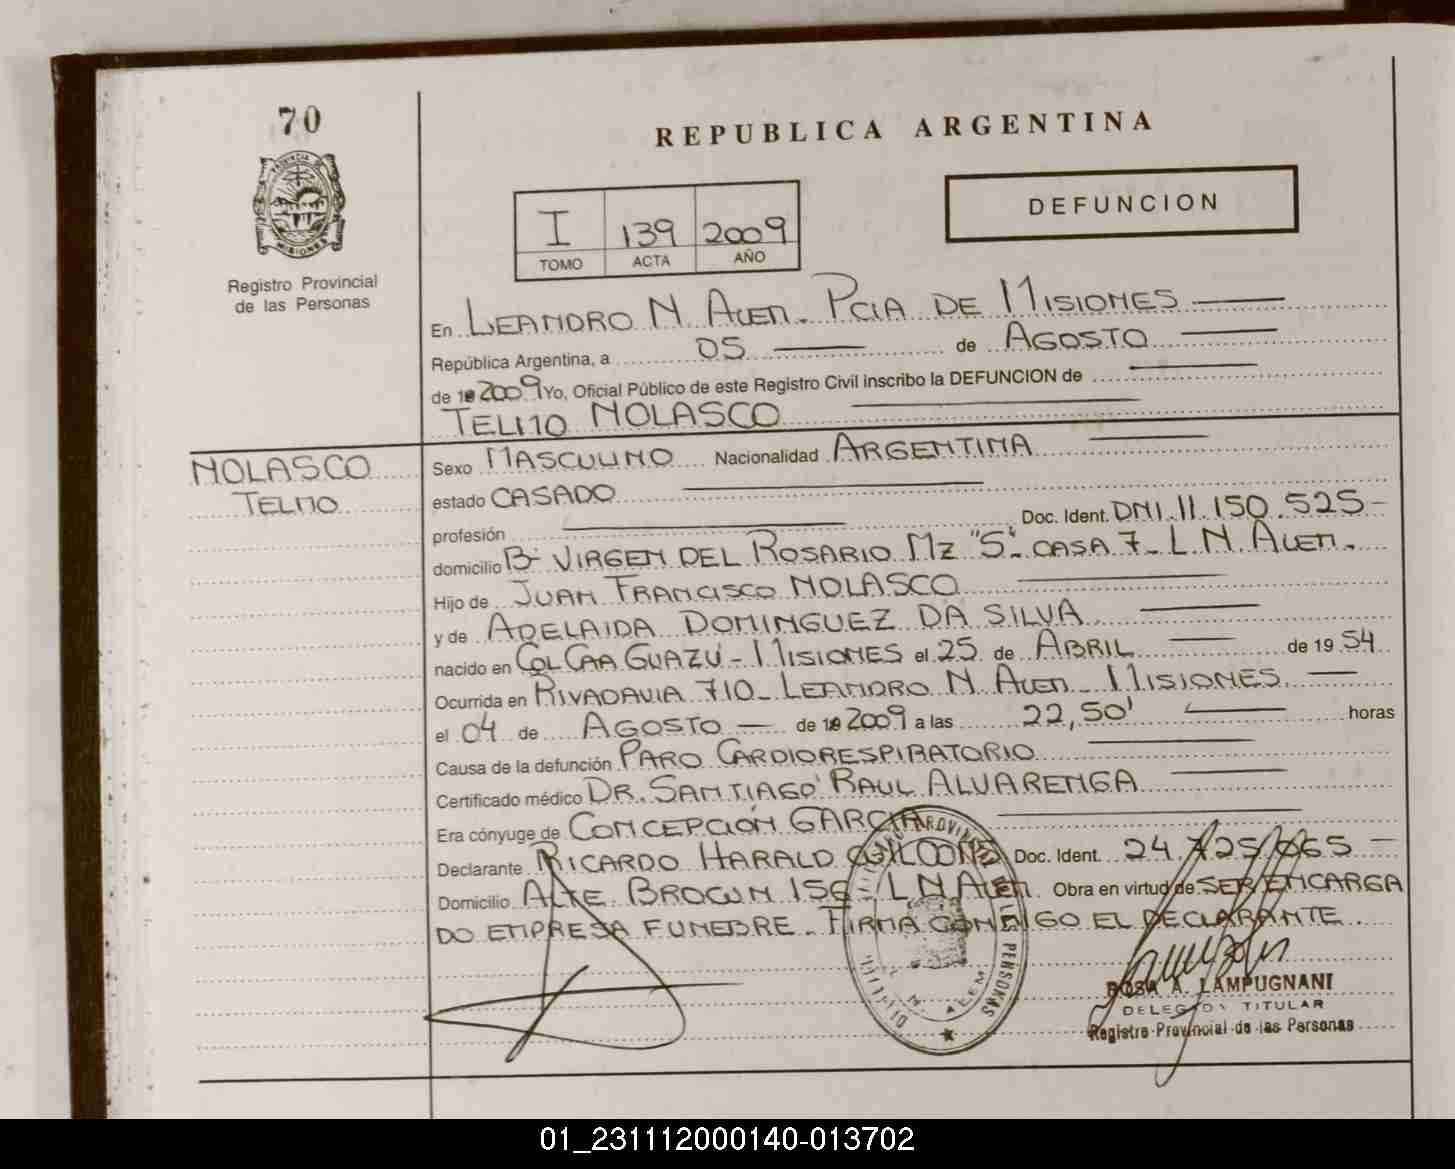 70
REPUBLICA ARGENTINA
PROVINCIA DE
MISIONES
DEFUNCION
I 139 2009
TOMO ACTA AÑO
Registro Provincial
de las Personas
En LEANDRO N. ALEM. PCIA DE MISIONES
República Argentina, a 05 de AGOSTO
de 2009 Yo, Oficial Público de este Registro Civil inscribo la DEFUNCION de
TELMO NOLASCO
NOLASCO
TELMO
Sexo MASCULINO Nacionalidad ARGENTINA
estado CASADO
profesión Doc. Ident. DNI. 11.150.525-
domicilio B- VIRGEN DEL ROSARIO MZ "S". CASA 7- L.N. ALEM.
Hijo de JUAN FRANCISCO NOLASCO
y de ADELAIDA DOMINGUEZ DA SILVA
nacido en COL CAA GUAZÚ - MISIONES el 25 de ABRIL de 1954
Ocurrida en RIVADAVIA 710- LEANDRO N. ALEM - MISIONES
el 04 de AGOSTO de 2009 a las 22,50' horas
Causa de la defunción PARO CARDIORESPIRATORIO
Certificado médico DR. SANTIAGO RAUL ALVARENGA
Era cónyuge de CONCEPCION GARCIA
Declarante RICARDO HARALD Doc. Ident. 24.725.065-
Domicilio ALTE BROWN 156 L.N. ALEM. Obra en virtud de SER ENCARGA
DO EMPRESA FUNEBRE. FIRMA CONMIGO EL DECLARANTE.
ROSA A. LAMPUGNANI
DELEGADA TITULAR
Registro Provincial de las Personas
01_231112000140-013702